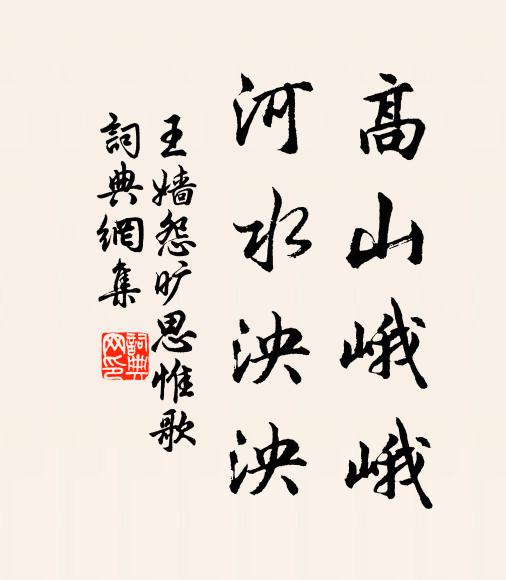 高山峨峨
河水泱泱
王嫱怨旷思惟歌
詞典網集
詞典網印